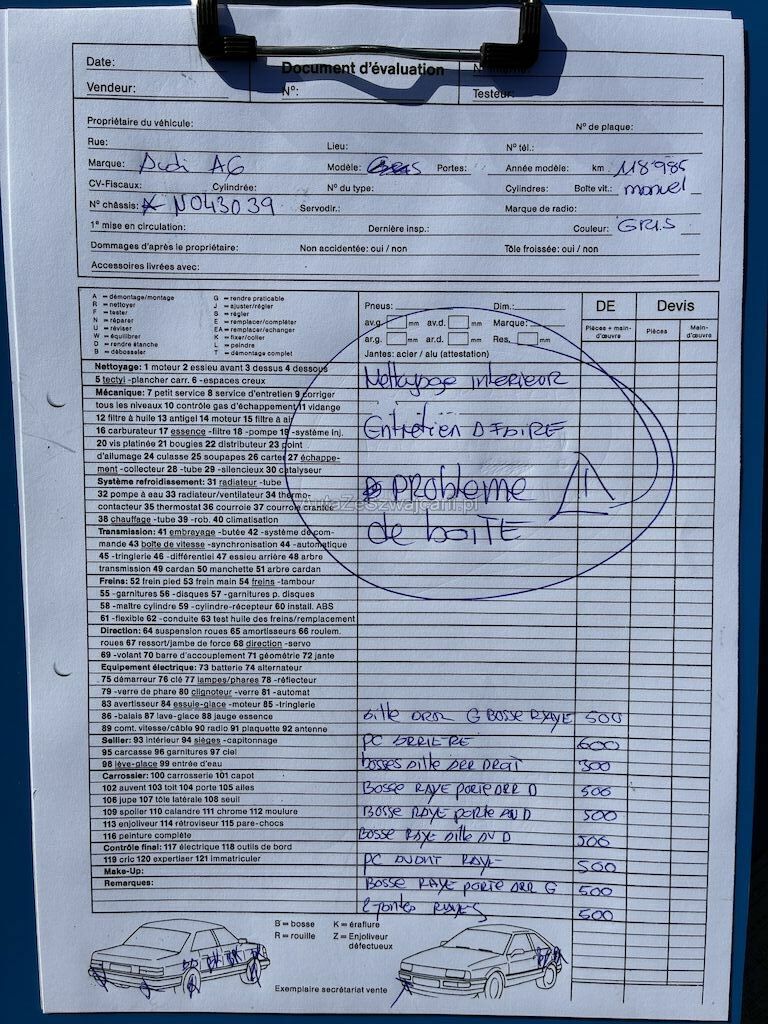 Date:
Document d'évaluation
Vendeur:
N°:
Testeur:
Propriétaire du véhicule:
N° de plaque:
Rue:
Lieu:
N° tél.:
Marque: Audi A6 Modèle: Portes: Année modèle: km 118'985
CV-Fiscaux: Cylindrée: N° du type: Cylindres: Boîte vit.: manuel
N° châssis: N043039 Servodir.: Marque de radio:
1e mise en circulation: Dernière insp.: Couleur: GRIS
Dommages d'après le propriétaire: Non accidentée: oui / non Tôle froissée: oui / non
Accessoires livrées avec:
A = démontage/montage G = rendre praticable
R = nettoyer J = ajuster/régler
F = tester S = régler
N = réparer E = remplacer/compléter
U = réviser EA = remplacer/echanger
W = équilibrer K = fixer/coller
D = rendre étanche L = peindre
B = débosseler T = démontage complet
Pneus: Dim.:
av.g. mm av.d. mm Marque:
ar.g. mm ar.d. mm Res. mm
Jantes: acier / alu (attestation)
DE Devis
Pièces + main-d'œuvre Pièces Main-d'œuvre
Nettoyage: 1 moteur 2 essieu avant 3 dessus 4 dessous
5 tectyl -plancher carr. 6 -espaces creux
Nettoyage interieur
Mécanique: 7 petit service 8 service d'entretien 9 corriger
tous les niveaux 10 contrôle gaz d'échappement 11 vidange
12 filtre à huile 13 antigel 14 moteur 15 filtre à air
16 carburateur 17 essence -filtre 18 -pompe 19 -système inj.
Entretien A FAIRE
20 vis platinée 21 bougies 22 distributeur 23 point
d'allumage 24 culasse 25 soupapes 26 carter 27 échappe-
ment -collecteur 28 -tube 29 -silencieux 30 catalyseur
Système refroidissement: 31 radiateur -tube
PROBLEME
32 pompe à eau 33 radiateur/ventilateur 34 thermo-
contacteur 35 thermostat 36 courroie 37 courroie crantée
AutoZeSzwajcarii.pl
38 chauffage -tube 39 -rob. 40 climatisation
Transmission: 41 embrayage -butée 42 -système de com-
de boite
mande 43 boîte de vitesse -synchronisation 44 -automatique
45 -tringlerie 46 -différentiel 47 essieu arrière 48 arbre
transmission 49 cardan 50 manchette 51 arbre cardan
Freins: 52 frein pied 53 frein main 54 freins -tambour
55 -garnitures 56 -disques 57 -garnitures p. disques
58 -maître cylindre 59 -cylindre-récepteur 60 install. ABS
61 -flexible 62 -conduite 63 test huile des freins/remplacement
Direction: 64 suspension roues 65 amortisseurs 66 roulem.
roues 67 ressort/jambe de force 68 direction -servo
69 -volant 70 barre d'accouplement 71 géométrie 72 jante
Equipement électrique: 73 batterie 74 alternateur
75 démarreur 76 clé 77 lampes/phares 78 -réflecteur
79 -verre de phare 80 clignoteur -verre 81 -automat
83 avertisseur 84 essuie-glace -moteur 85 -tringlerie
86 -balais 87 lave-glace 88 jauge essence
89 comt. vitesse/câble 90 radio 91 plaquette 92 antenne
G BOSSE RAYE 500
Sellier: 93 intérieur 94 sièges -capitonnage
PC ARRIERE 600
95 carcasse 96 garnitures 97 ciel
98 lève-glace 99 entrée d'eau
bosses Aille ARR DROIT 300
Carrossier: 100 carrosserie 101 capot
102 auvent 103 toit 104 porte 105 ailes
BOSSE RAYE PORTE ARR D 500
106 jupe 107 tôle latérale 108 seuil
109 spoiler 110 calandre 111 chrome 112 moulure
BOSSE RAYE PORTE AV D 500
113 enjoliveur 114 rétroviseur 115 pare-chocs
116 peinture complète
BOSSE RAYE Aille AV D 500
Contrôle final: 117 électrique 118 outils de bord
119 cric 120 expertiser 121 immatriculer
PC AVANT RAYE 500
Make-Up:
Remarques:
BOSSE RAYE PORTE ARR G 500
2 Jantes RAYES 500
B = bosse K = éraflure
R = rouille Z = Enjoliveur défectueux
Exemplaire secrétariat vente